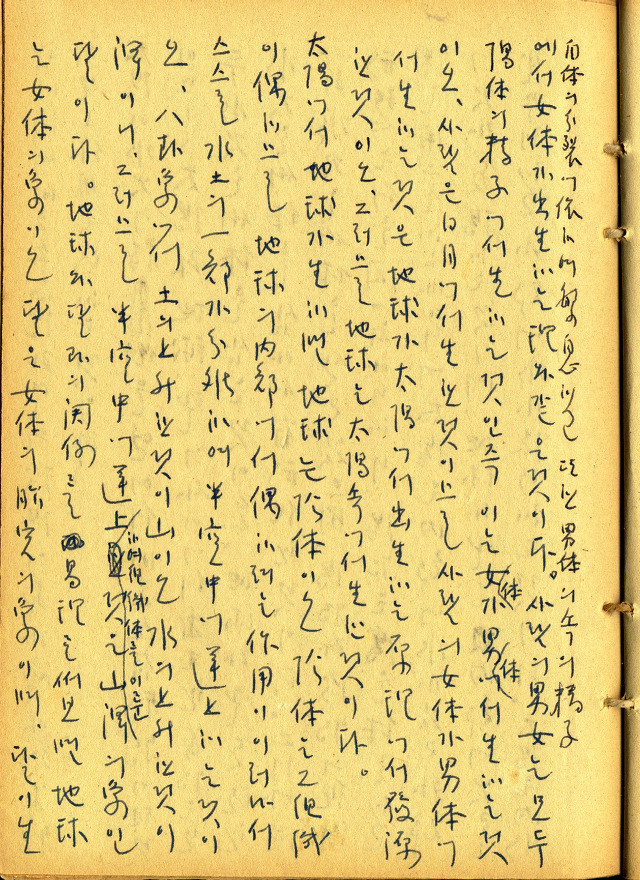 自体의 分裂에 依하여 繁息하고 또한 男体의 속의 精子
에서 女体가 出生하는 理와 같은 것이다。 사람의 男女는 모두
陽体의 精子에서 生하는 것인즉 이는 女体가 男体에서 生하는 것
이오、사람은 日月에서 生한 것이므로 사람의 女体가 男体에
서 生하는 것은 地球가 太陽에서 出生하는 原理에서 發源
한 것이오、그러므로 地球는 太陽 속에서 生한 것이다。
太陽에서 地球가 生하면 地球는 陰体이오 陰体는 그 組織
이 偶하므로 地球의 內部에서 偶하려는 作用이 이러나서
스스로 水土의 一部가 分離하여 半空中에 運上하는 것이
오、八卦象에서 土의 上升한 것이 山이오 水의 上升한 것이
澤이니、그러므로 半空中에 運上하여 組織体를 이룬 것은 山澤의 象인
달이다。 地球와 달과의 関係를 易理로써 보면 地球
는 女体의 象이오 달은 女体의 胎宮의 象이며、달이 生